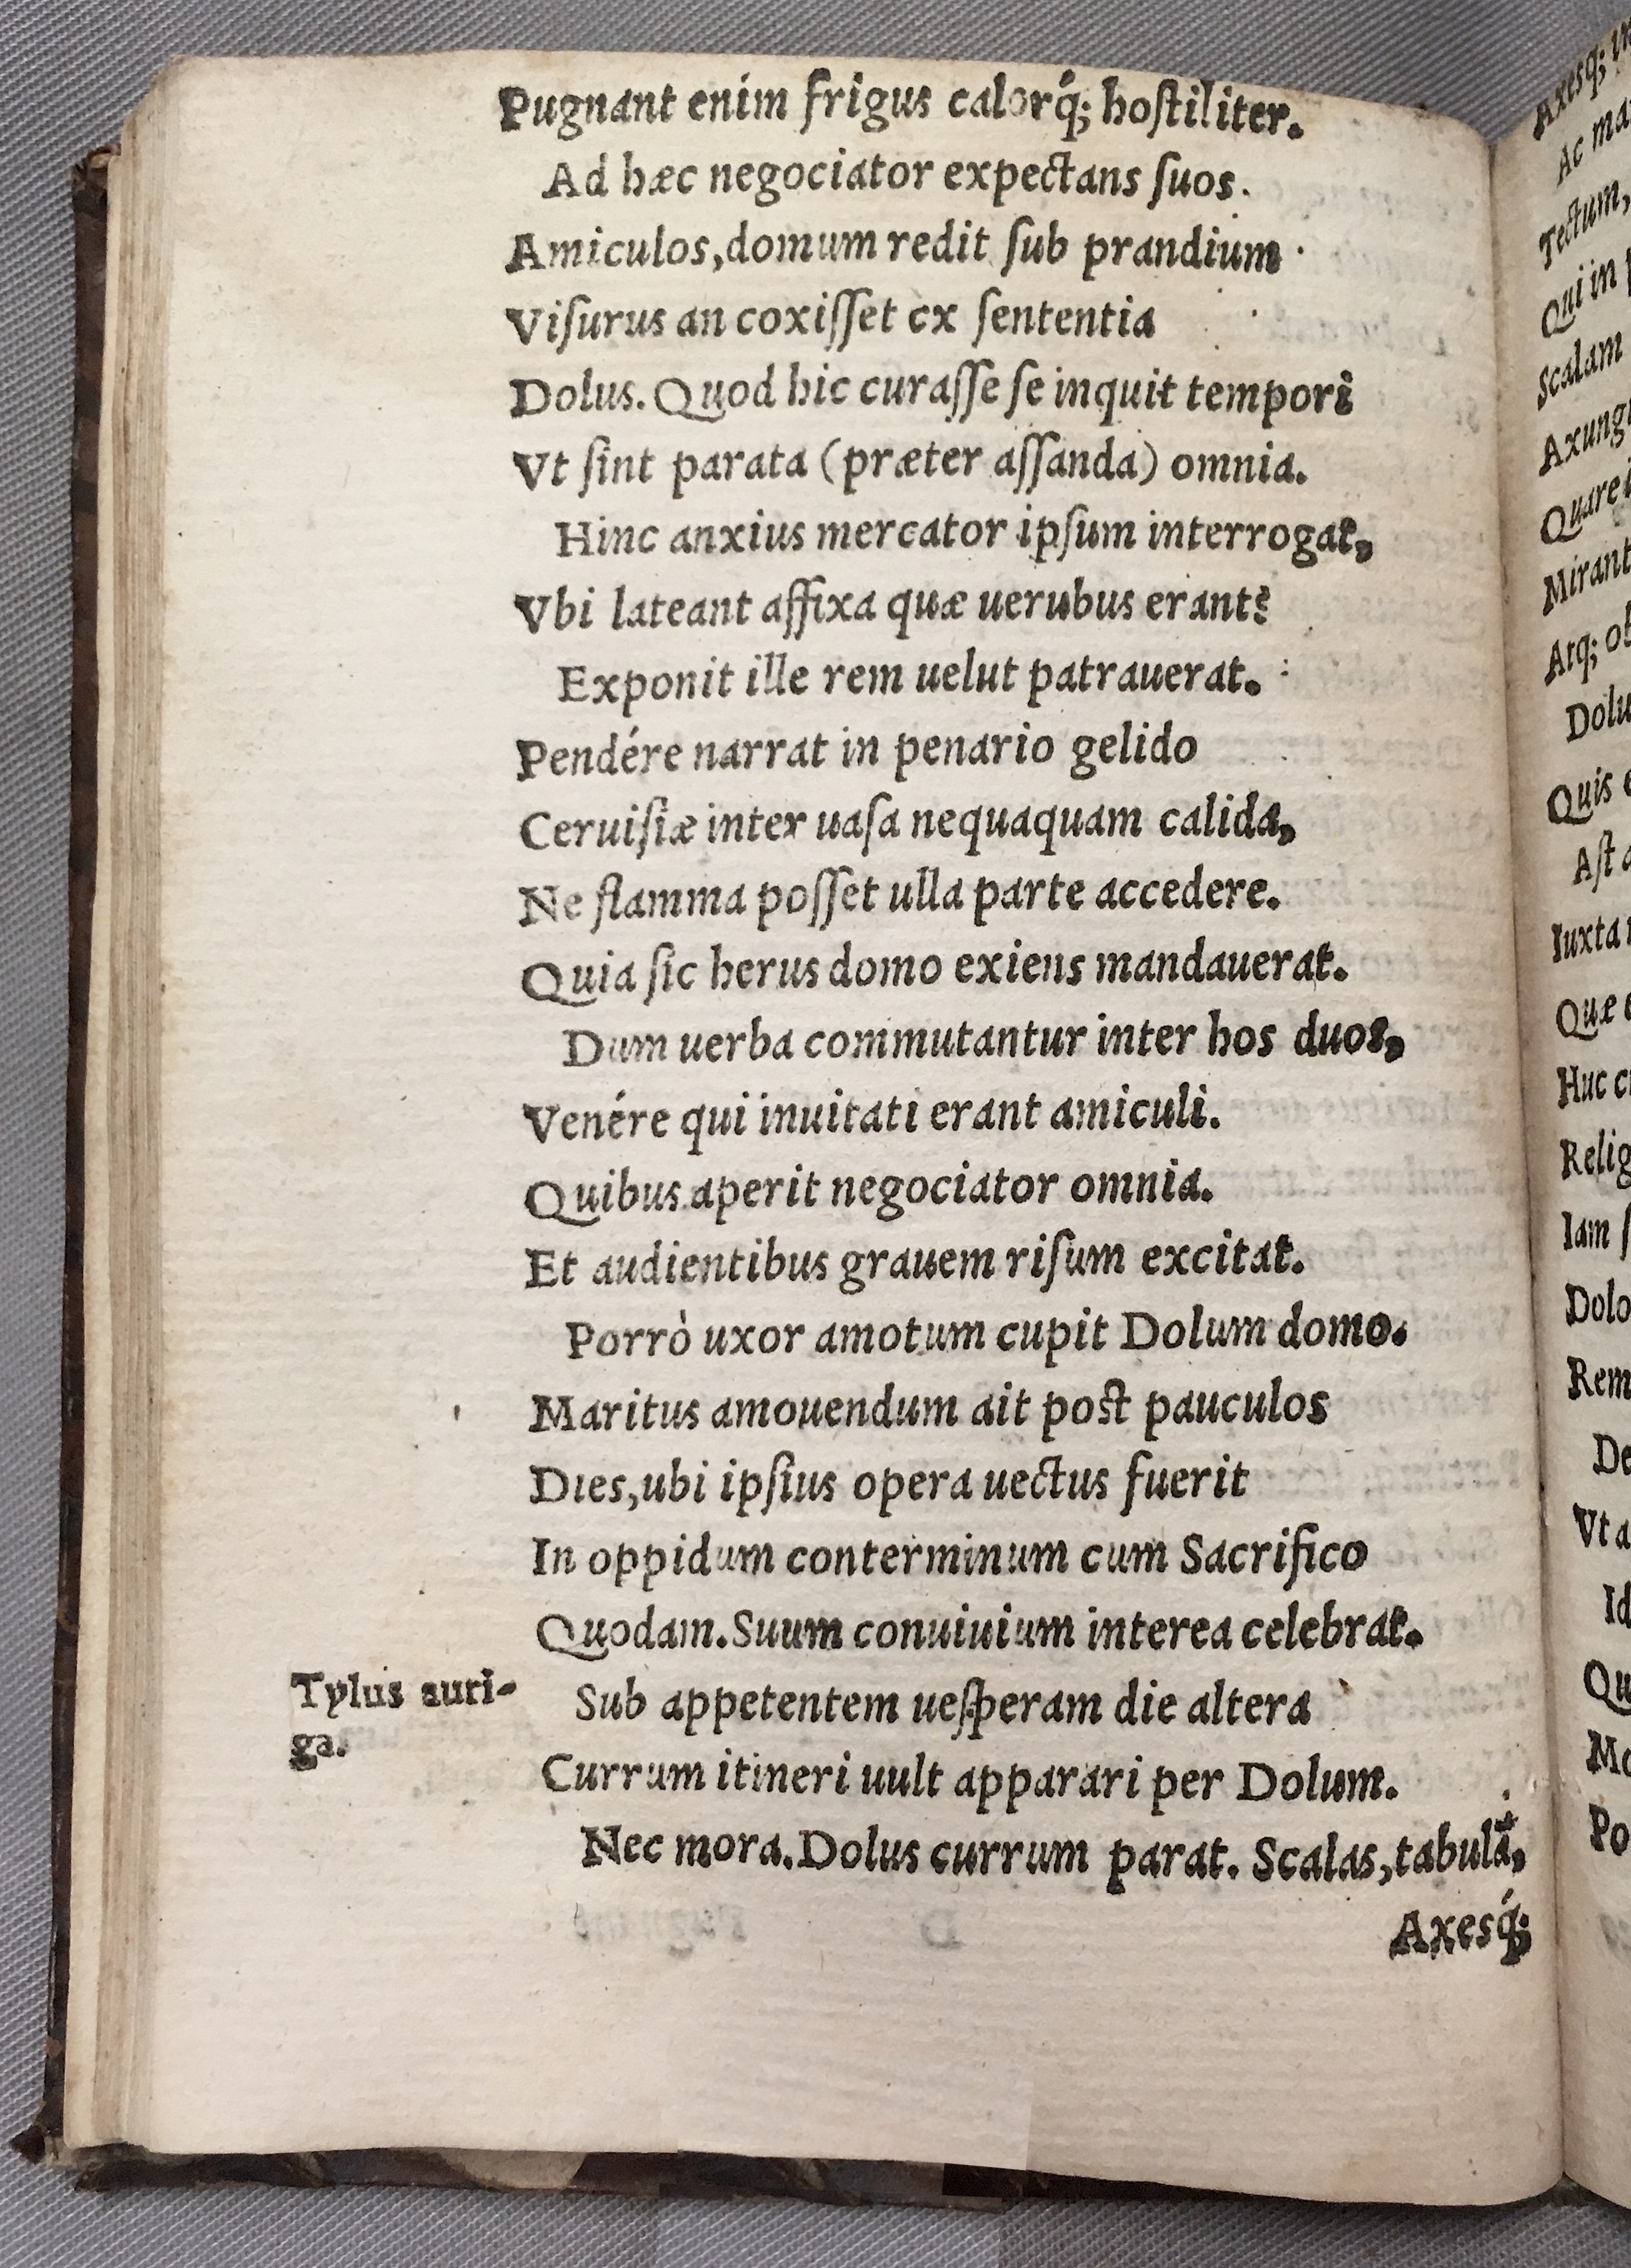 Pugnant enim frigus calorq́; hoſtiliter.
Ad hæc negociator expectans ſuos.
Amiculos,domum redit ſub prandium
Viſurus an coxiſſet cx ſententia
Dolus. Quod hic curaſſe ſe inquit tempori
Vt ſint parata (præter aſſanda) omnia.
Hinc anxius mercator ipſum interrogat,
Vbi lateant affixa quæ uerubus erant?
Exponit ille rem uelut patrauerat.
Pendére narrat in penario gelido
Ceruiſiæ inter uaſa nequaquam calida,
Ne flamma poſſet ulla parte accedere.
Quia ſic herus domo exiens mandauerat.
Dum uerba commutantur inter hos duos,
Venére qui inuitati erant amiculi.
Quibus aperit negociator omnia.
Et audientibus grauem riſum excitat.
Porrò uxor amotum cupit Dolum domo.
Maritus amouendum ait poſt pauculos
Dies,ubi ipſius opera uectus fuerit
In oppidum conterminum cum Sacrifico
Quodam. Suum conuiuium interea celebrat.
Tylus auri-
ga.
Sub appetentem ueſperam die altera
Currum itineri uult apparari per Dolum.
Nec mora. Dolus currum parat. Scalas,tabulã,
Axesq́;
Axesq; in
Ac ma
Tectum,
Qui in
Scalam
Axung
Quare
Mirant
Atq; ob
Dolu
Quis
Aſt
Iuxta
Quæ
Huc
Relig
Iam
Dolo
Rem
De
Vt a
Id
Qu
Mo
Po